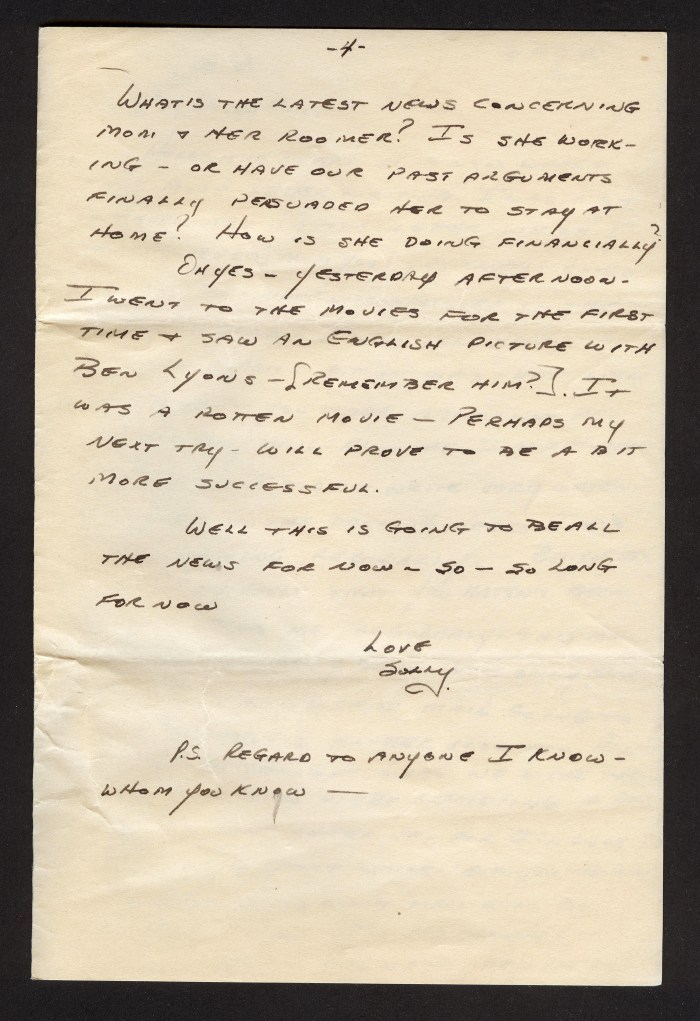 -4-
WHAT IS THE LATEST NEWS CONCERNING
MOM & HER ROOMER? IS SHE WORK-
ING - OR HAVE OUR PAST ARGUMENTS
FINALLY PERSUADED HER TO STAY AT
HOME? HOW IS SHE DOING FINANCIALLY?
OH YES - YESTERDAY AFTERNOON -
I WENT TO THE MOVIES FOR THE FIRST
TIME & SAW AN ENGLISH PICTURE WITH
BEN LYONS - [REMEMBER HIM?]. IT
WAS A ROTTEN MOVIE - PERHAPS MY
NEXT TRY - WILL PROVE TO BE A BIT
MORE SUCCESSFUL.
WELL THIS IS GOING TO BE ALL
THE NEWS FOR NOW - SO - SO LONG
FOR NOW
LOVE
SOLLY.
P.S. REGARD TO ANYONE I KNOW -
WHOM YOU KNOW —